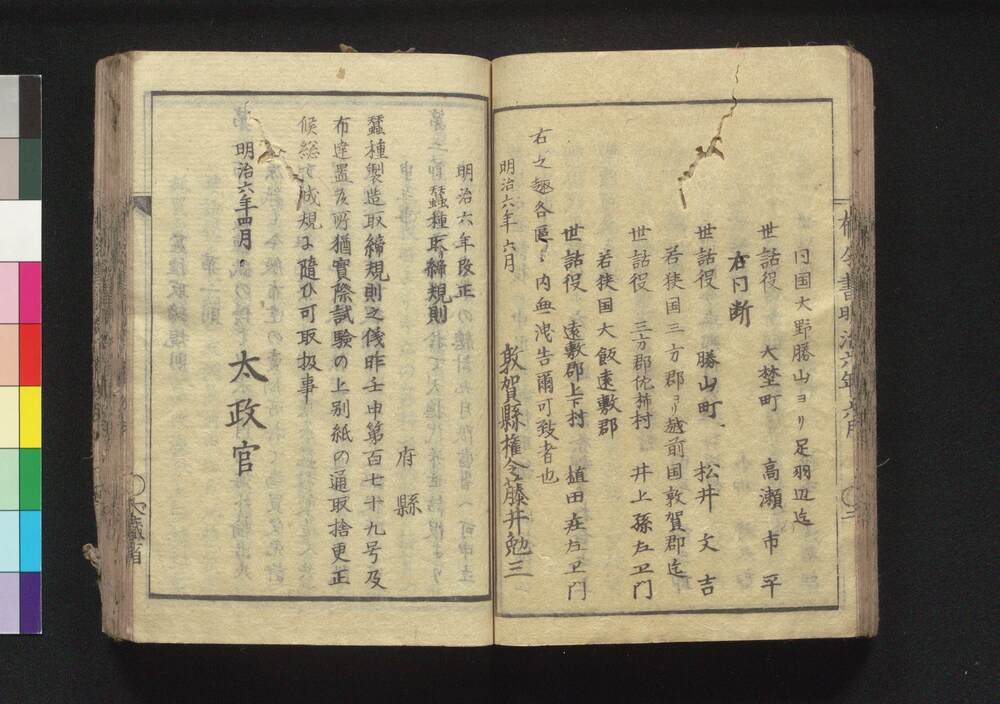 同国大野勝山ヨリ足羽辺迄
世話役 大埜町 高瀬市平
右同断
世話役 勝山町 松井文吉
若狭国三方郡ヨリ越前国敦賀郡迄
世話役 三方郡佐柿村 井上孫左ヱ门
若狭国大飯遠敷郡
世話役 遠敷郡上下村 植田庄左ヱ门
右之趣各區内無洩告爾可致者也
明治六年六月
敦賀縣権令藤井勉三
明治六年改正
蠶種取締規則
府縣
蠶種製造取締規則之儀昨壬申第百七十九号及
布達置候所猶實際試験の上別紙の通取捨更正
候総て成規ニ随ひ可取扱事
明治六年四月
太政官